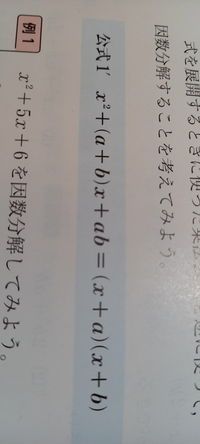 式を展開するときに使った乗法
に使って，
因数分解することを考えてみよう。
公式1′ x²+(a+b)x+ab=(x+a)(x+b)
例1
x²+5x+6を因数分解してみよう。